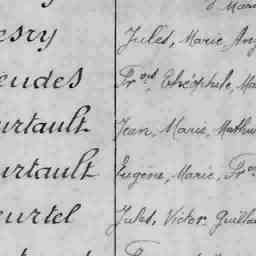 esry Jules, Marie, Ang
eudes Fr.çois, Théophile, Ma
urtault Jean, Marie, Mathur
urtault Eugène, Marie, Fr
eurtel Jules, Victor Guilla